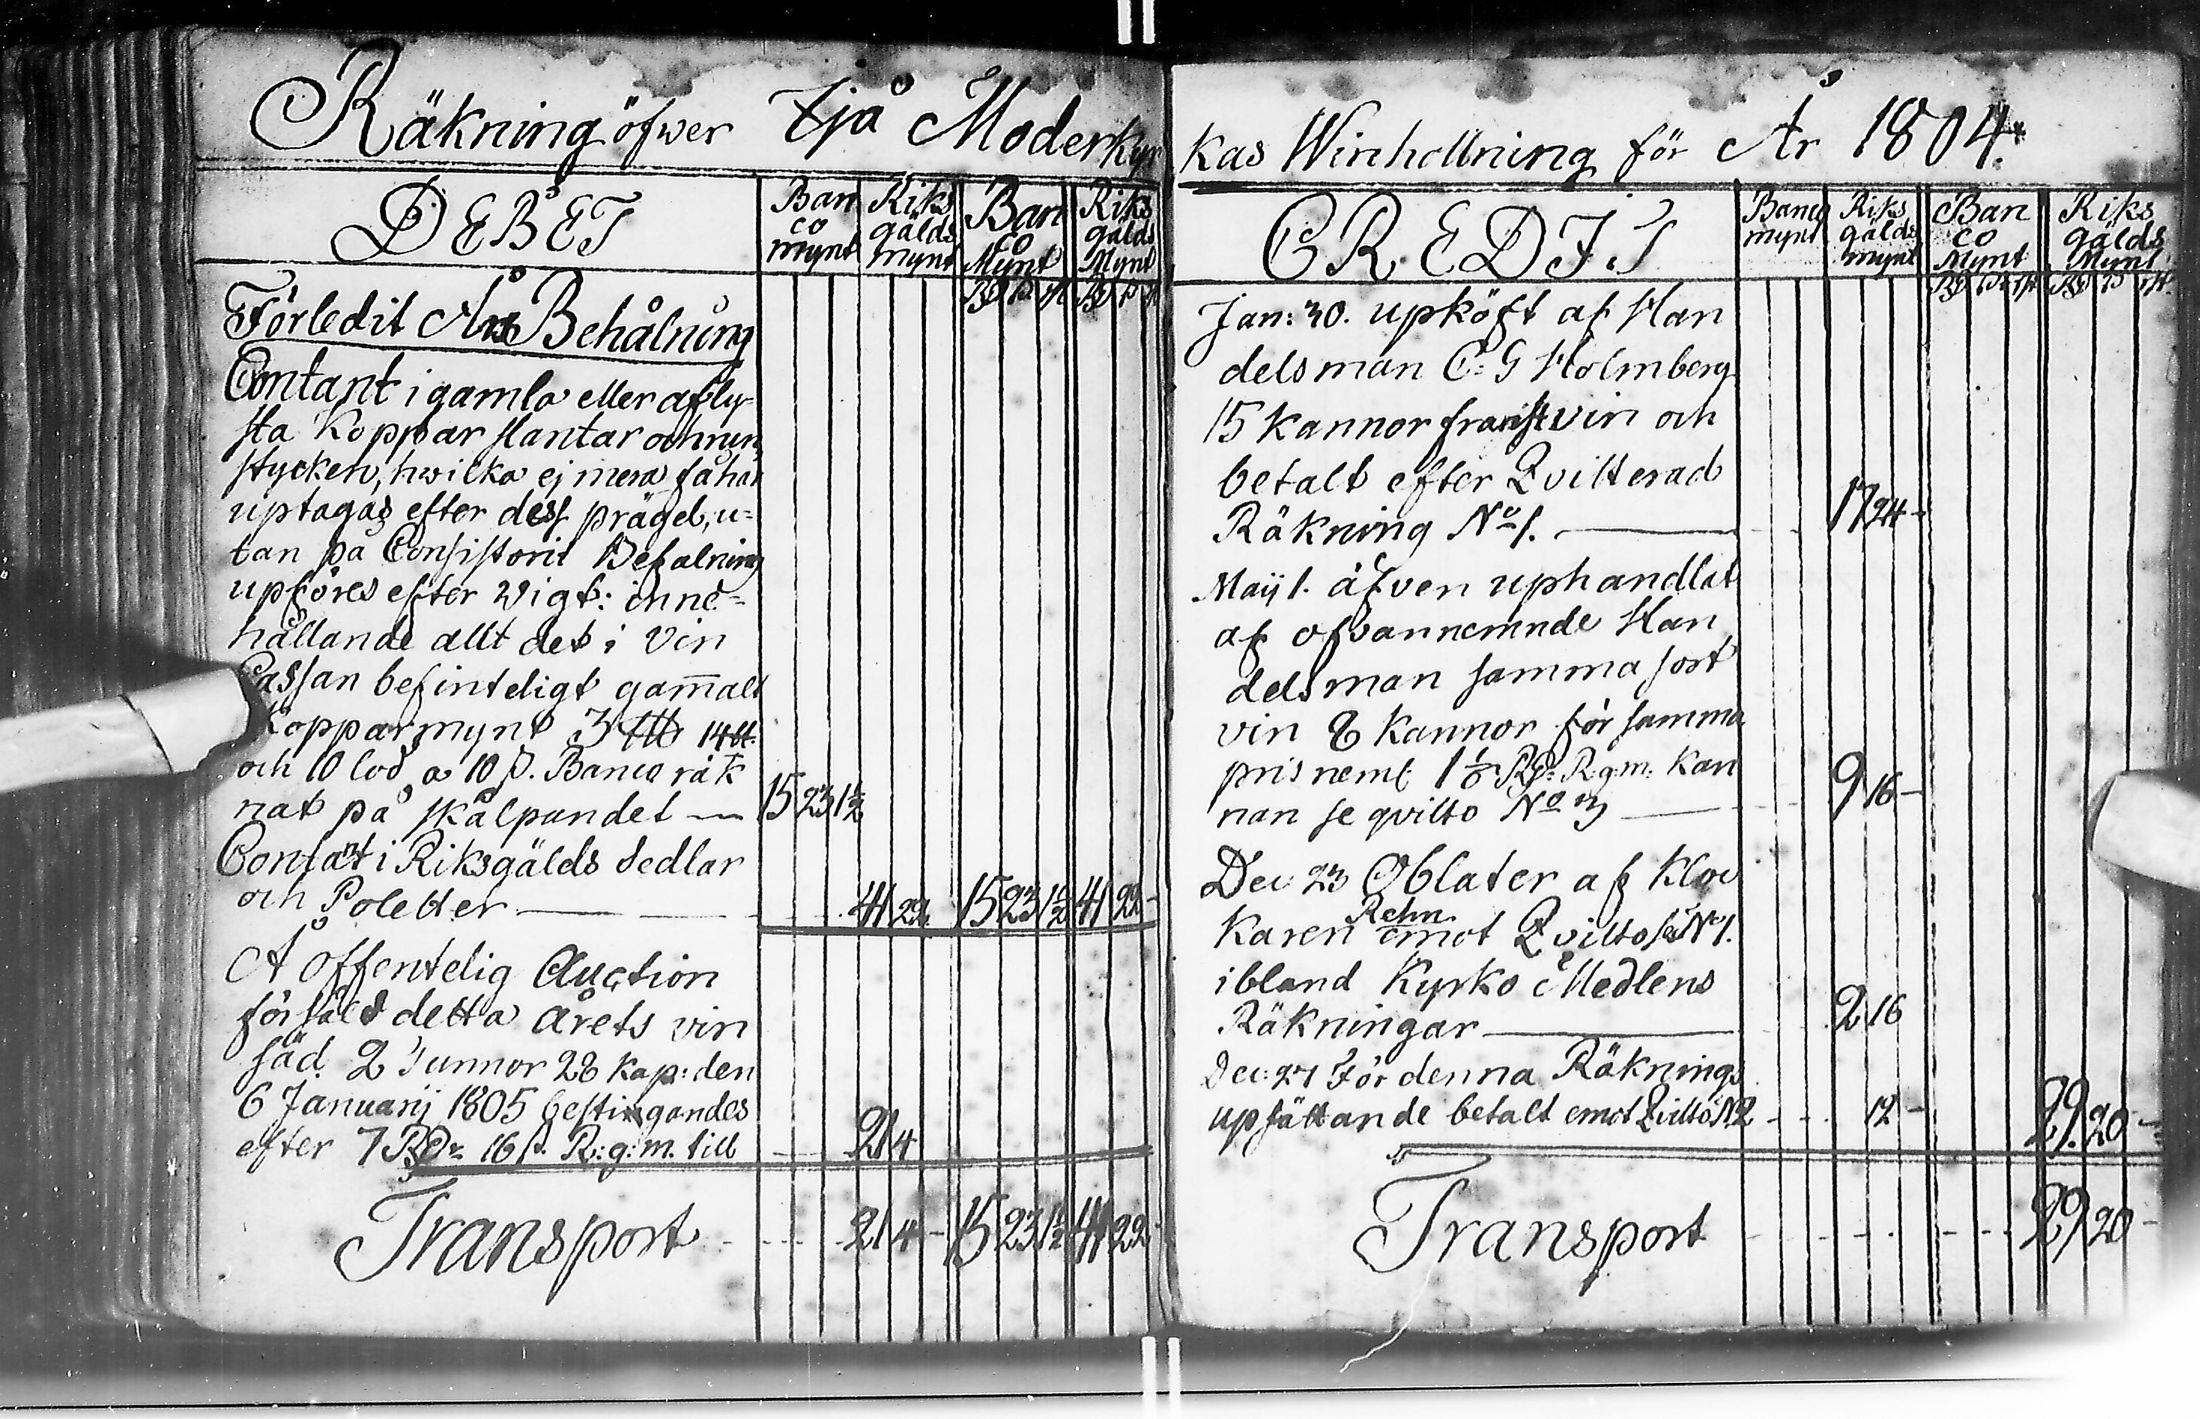 Räkning öfwer Ejå Moderkyr
DEBET
Ban
co
mynt
Riks
gälds
mynt
Ban
co
Mynt
Riks
gälds
Mynt
Förledit Års Behålning
Contant i gamla eller afly-
sta Koppar slantar och run
stycken, hwilka ej mera få här
uptagas efter dess prägel, u-
tan på Consistorii Befalning
upföres efter wigt: inne-
hållande allt det i Vin
Cassan befinteligt gamalt
Kopparmynt 3 14
och 10 lod a 10 ß. Banco räk
nat på skålpundet — 15 23 1½
Contant i Riksgälds Sedlar
och Poletter — 41 22 15 23 1½ 41 22 -
Å offentelig Auction
försåld detta årets vin
säd 2 Tunnor 28 kap: den
6 Januarij 1805 bestingandes
efter 7 RDr 16 ß. R:g:m. till 21 4
Transport 21 4 - 15 23 1½ 41 22
kas Winhollning för År 1804.
CREDIT
Banco
mynt
Riks
gälds
mynt
Ban
co
Mynt
Riks
gälds
Mynt
Jan: 30. upköft af Han
delsman C: G Holmberg
15 kannor franst vin och
betalt efter Qvitterad
Räkning No 1. — 17 24 -
Maij 1. äfven uphandlat
af ofvannemnde Han
delsman samma sort
vin 8 kannor för samma
pris neml. 1 R:g:m: kan
nan se qvitto No 3 — 9 16 -
Dec: 23 Oblater af Kloc
karen Rehn emot Qvitto No 1.
ibland Kyrko Medlens
Räkningar — 2 16
Dec: 27 För denna Räknings
upsättande betalt emot Qvitto N 2 12 - 29. 20 -
Transport 29 20 -